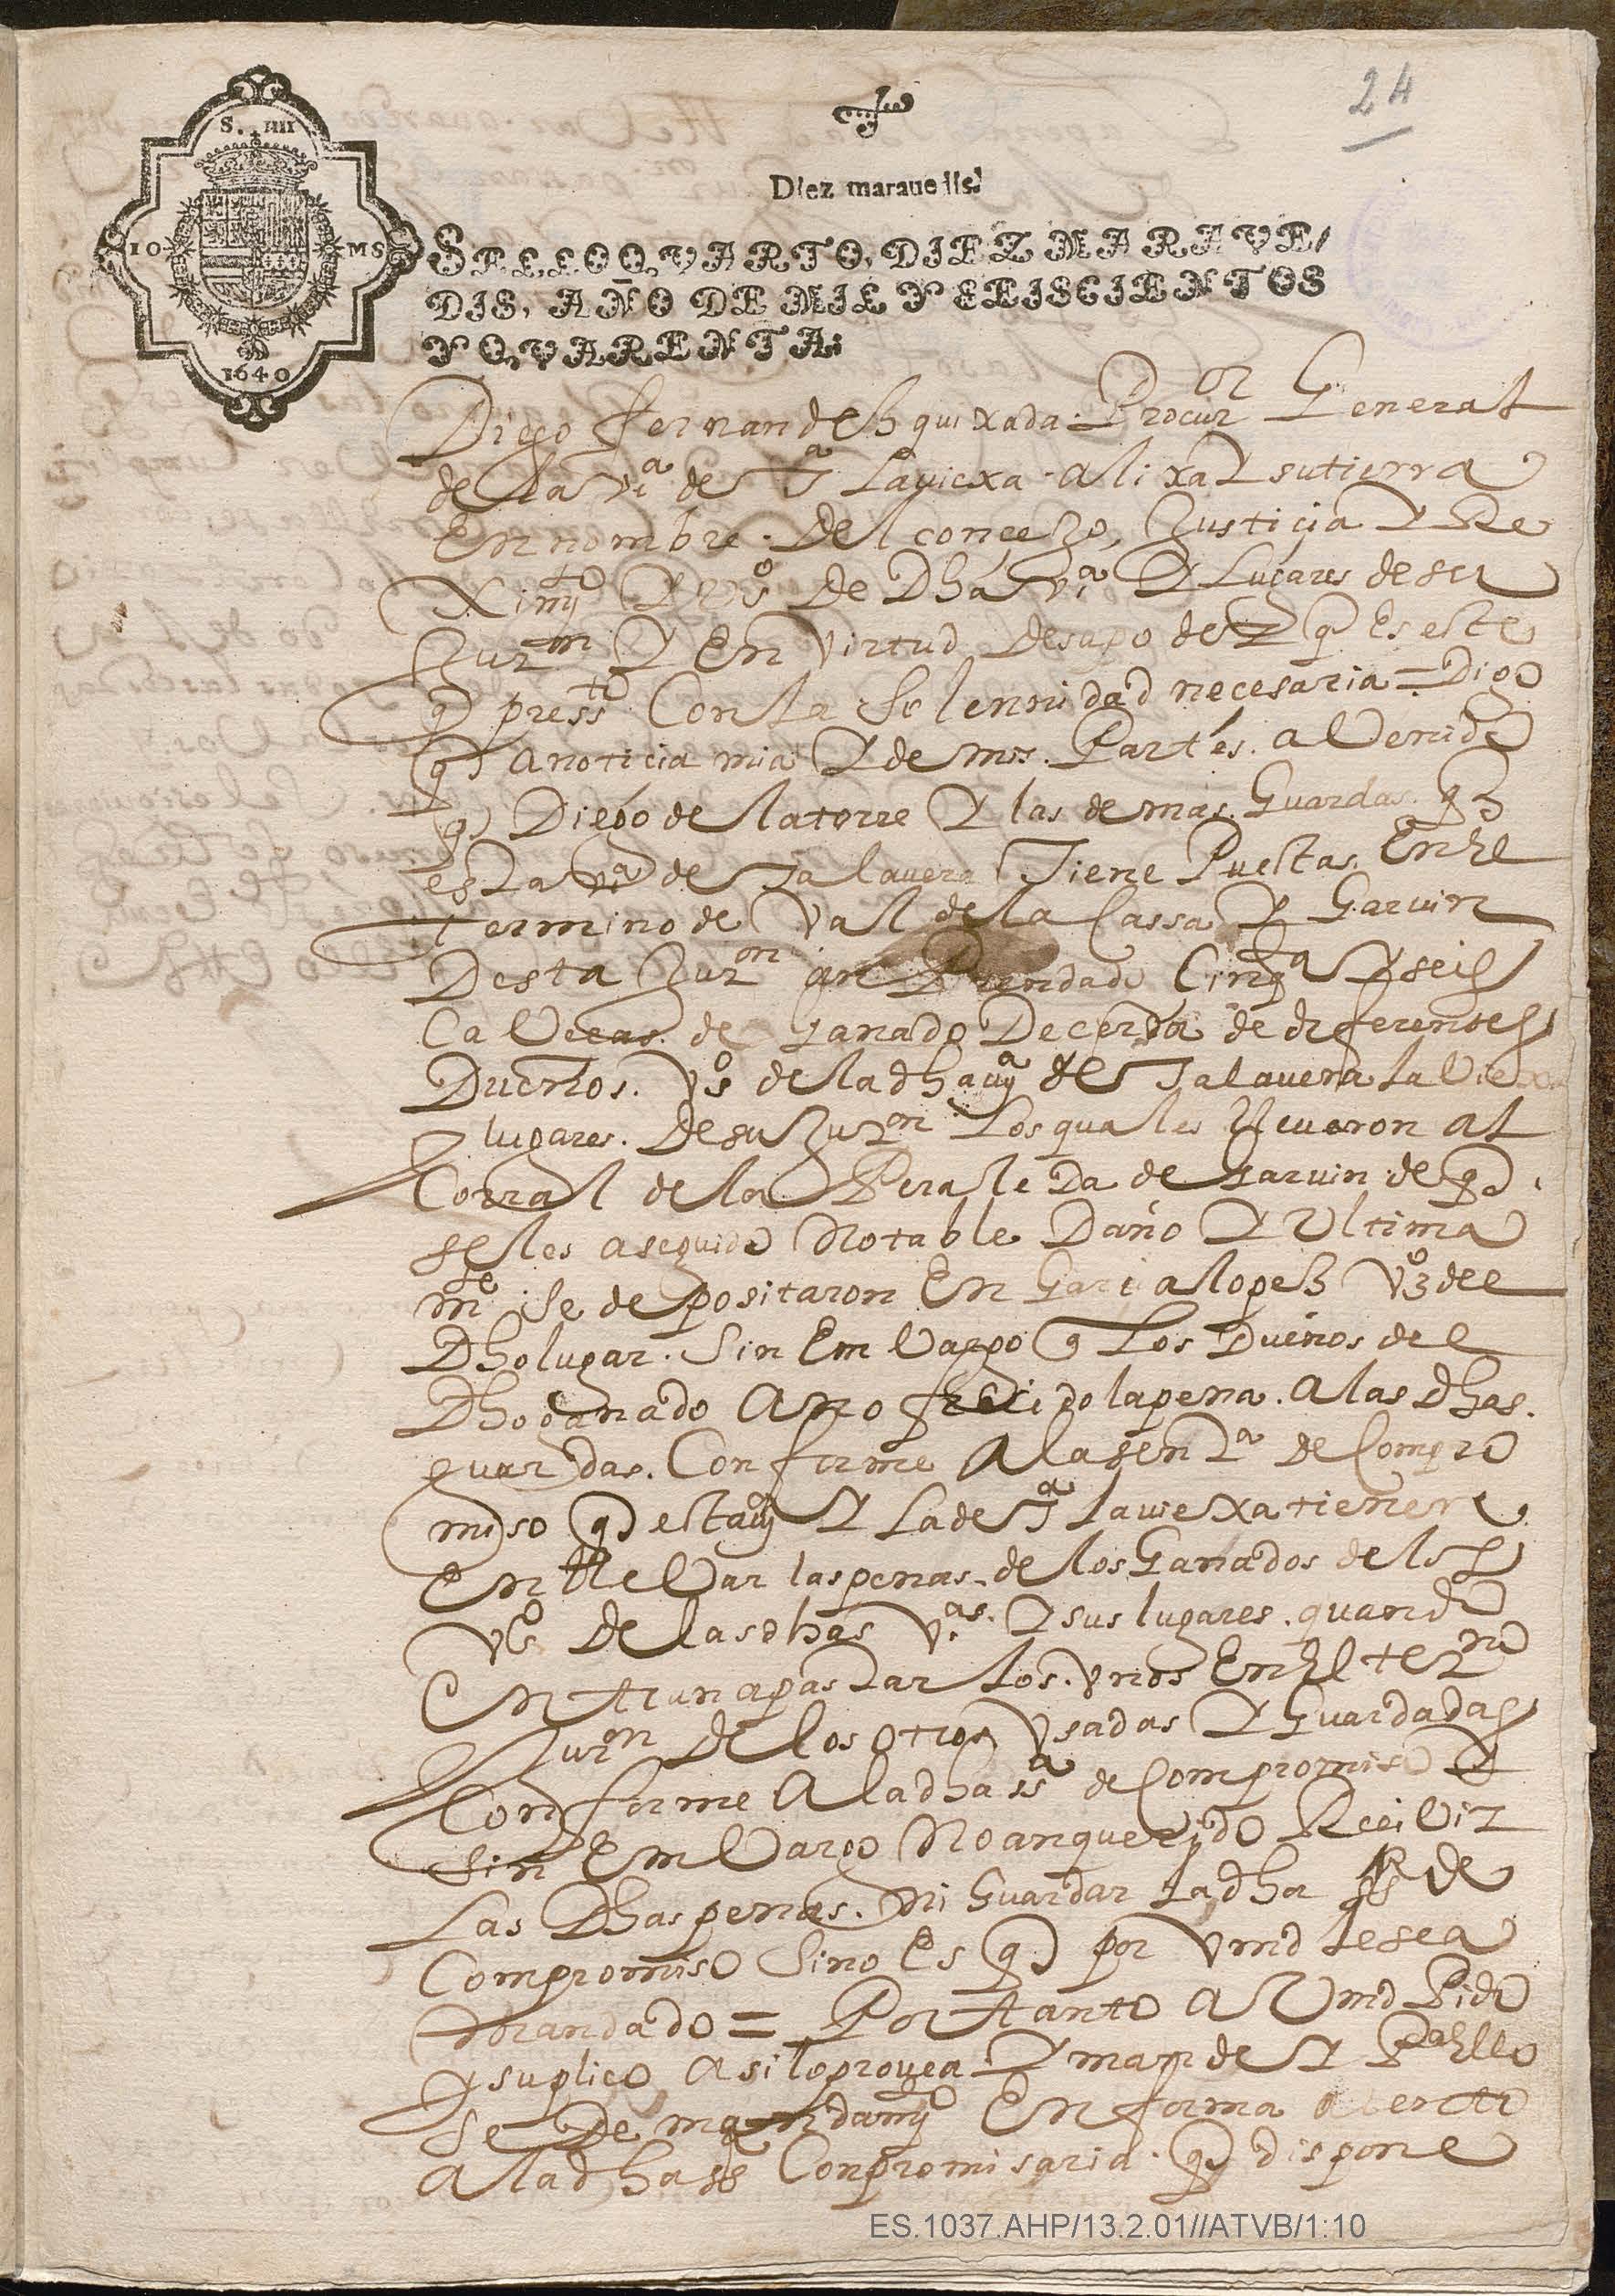 24
S. IIII
Diez maraueðis.
10 MS
SELLO QVARTO, DIEZ MARAVE,
DIS, AÑO DE MIL Y SEISCIENTOS
Y QVARENTA.
1640
Diego fernandeh quixada Procur.or General
de la vi.a de T.a la uiexa ali xa y su tierra
En nombre del conçejo, Justicia y Re
ximy.to y v.os de Dha vi.a y lugares de su
Jur.on y En virtud de su poder q es este
q press.to Con la solennidad necesaria = Digo
q a noticia mia y de mis Partes a Venido
q Diego de la torre y las demas Guardas q
esta vi.a de Talauera Tiene Puestas En el
termino de Val de la Cassa y Garuin
Desta Jur.on an Prendado Cinq.ta y seis
Caveças de ganado De cerda de diferentes
Dueños. V.os de la dha uy.a de Talauera la Viexa
y lugares. De su Jur.on Los quales lleuaron al
Corral de la Peraleda de garuin de q
se les a seguido Notable Daño y Ultima
m.te se depositaron En Garcia lopez V.o del
Dho lugar. Sin Em Vargo q Los Dueños del
Dho ganado An ofreçido la pena. A las Dhas.
guardas. Conforme A la sen.ta de Compro
miso q esta uy.a y La de T.a la uiexa tienen
En lleVar las penas de los Ganados de los
V.os De las dhas V.as y sus lugares. quando
Entran a pastar los unos En El ter.no
y Jur.on De los otros Usadas y Guardadas
Conforme A la dha ss.a de Compromiso y
sin EmVargo No an querido Reciuir
Las Dhas penas. Ni Guardar la dha ss.a de
Compromiso Sino Es q por Vmd le sea
Mandado = Por tanto A Vmd Pido
y suplico asi lo prouea y mande y P.a Ello
se De mandamy.o En forma atento
A la dha ss.a Conpromisaria q dispone
ES.1037.AHP/13.2.01//ATVB/1:10